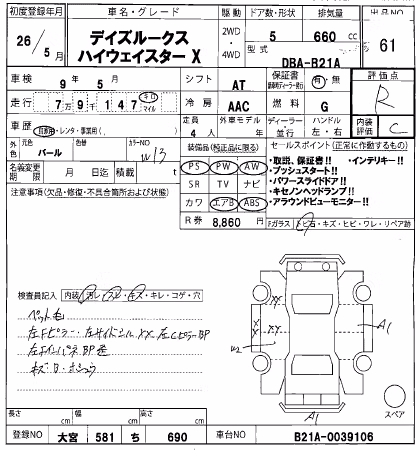 初度登録年月 車名・グレード 駆動 ドア数・形状 排気量 出品NO
26/5月 デイズルークス ハイウェイスター X 2WD・4WD 5 660cc 61
型式 DBA-B21A
車検 9年5月 シフト AT 保証書 有・無 評価点 R
走行 7万9千147 キロ マイル 冷房 AAC 燃料 G 内装評価 C
車歴 自家用・レンタ・事業用( ) 定員 4人 外車モデル 年 ディーラー・並行 ハンドル 左・右
外色 元色 パール 色替 カラーNO W13
名義変更期限 月 日 迄 積載 t
装備品(純正品に限る) セールスポイント(正常に作動するもの)
PS PW AW
SR TV ナビ
カワ エアB ABS
R券 8,860円
・取説、保証書!! ・インテリキー!!
・プッシュスタート!!
・パワースライドドア!!
・キセノンヘッドランプ!!
・アラウンドビューモニター!!
注意事項(欠品・修復・不具合箇所および状態)
Fガラス トビ石・キズ・ヒビ・ワレ・リペア跡
検査員記入 内装 汚レ・スレ・キズ・キレ・コゲ・穴
ペット毛
左Fピラー・左サイドシル XX 左Cピラー BP
左Fインパネ BP
XX
X X XX
W2
A1
A1
スペア
長さ cm 幅 cm 高さ cm
登録NO 大宮 581 ち 690 車台NO B21A-0039106